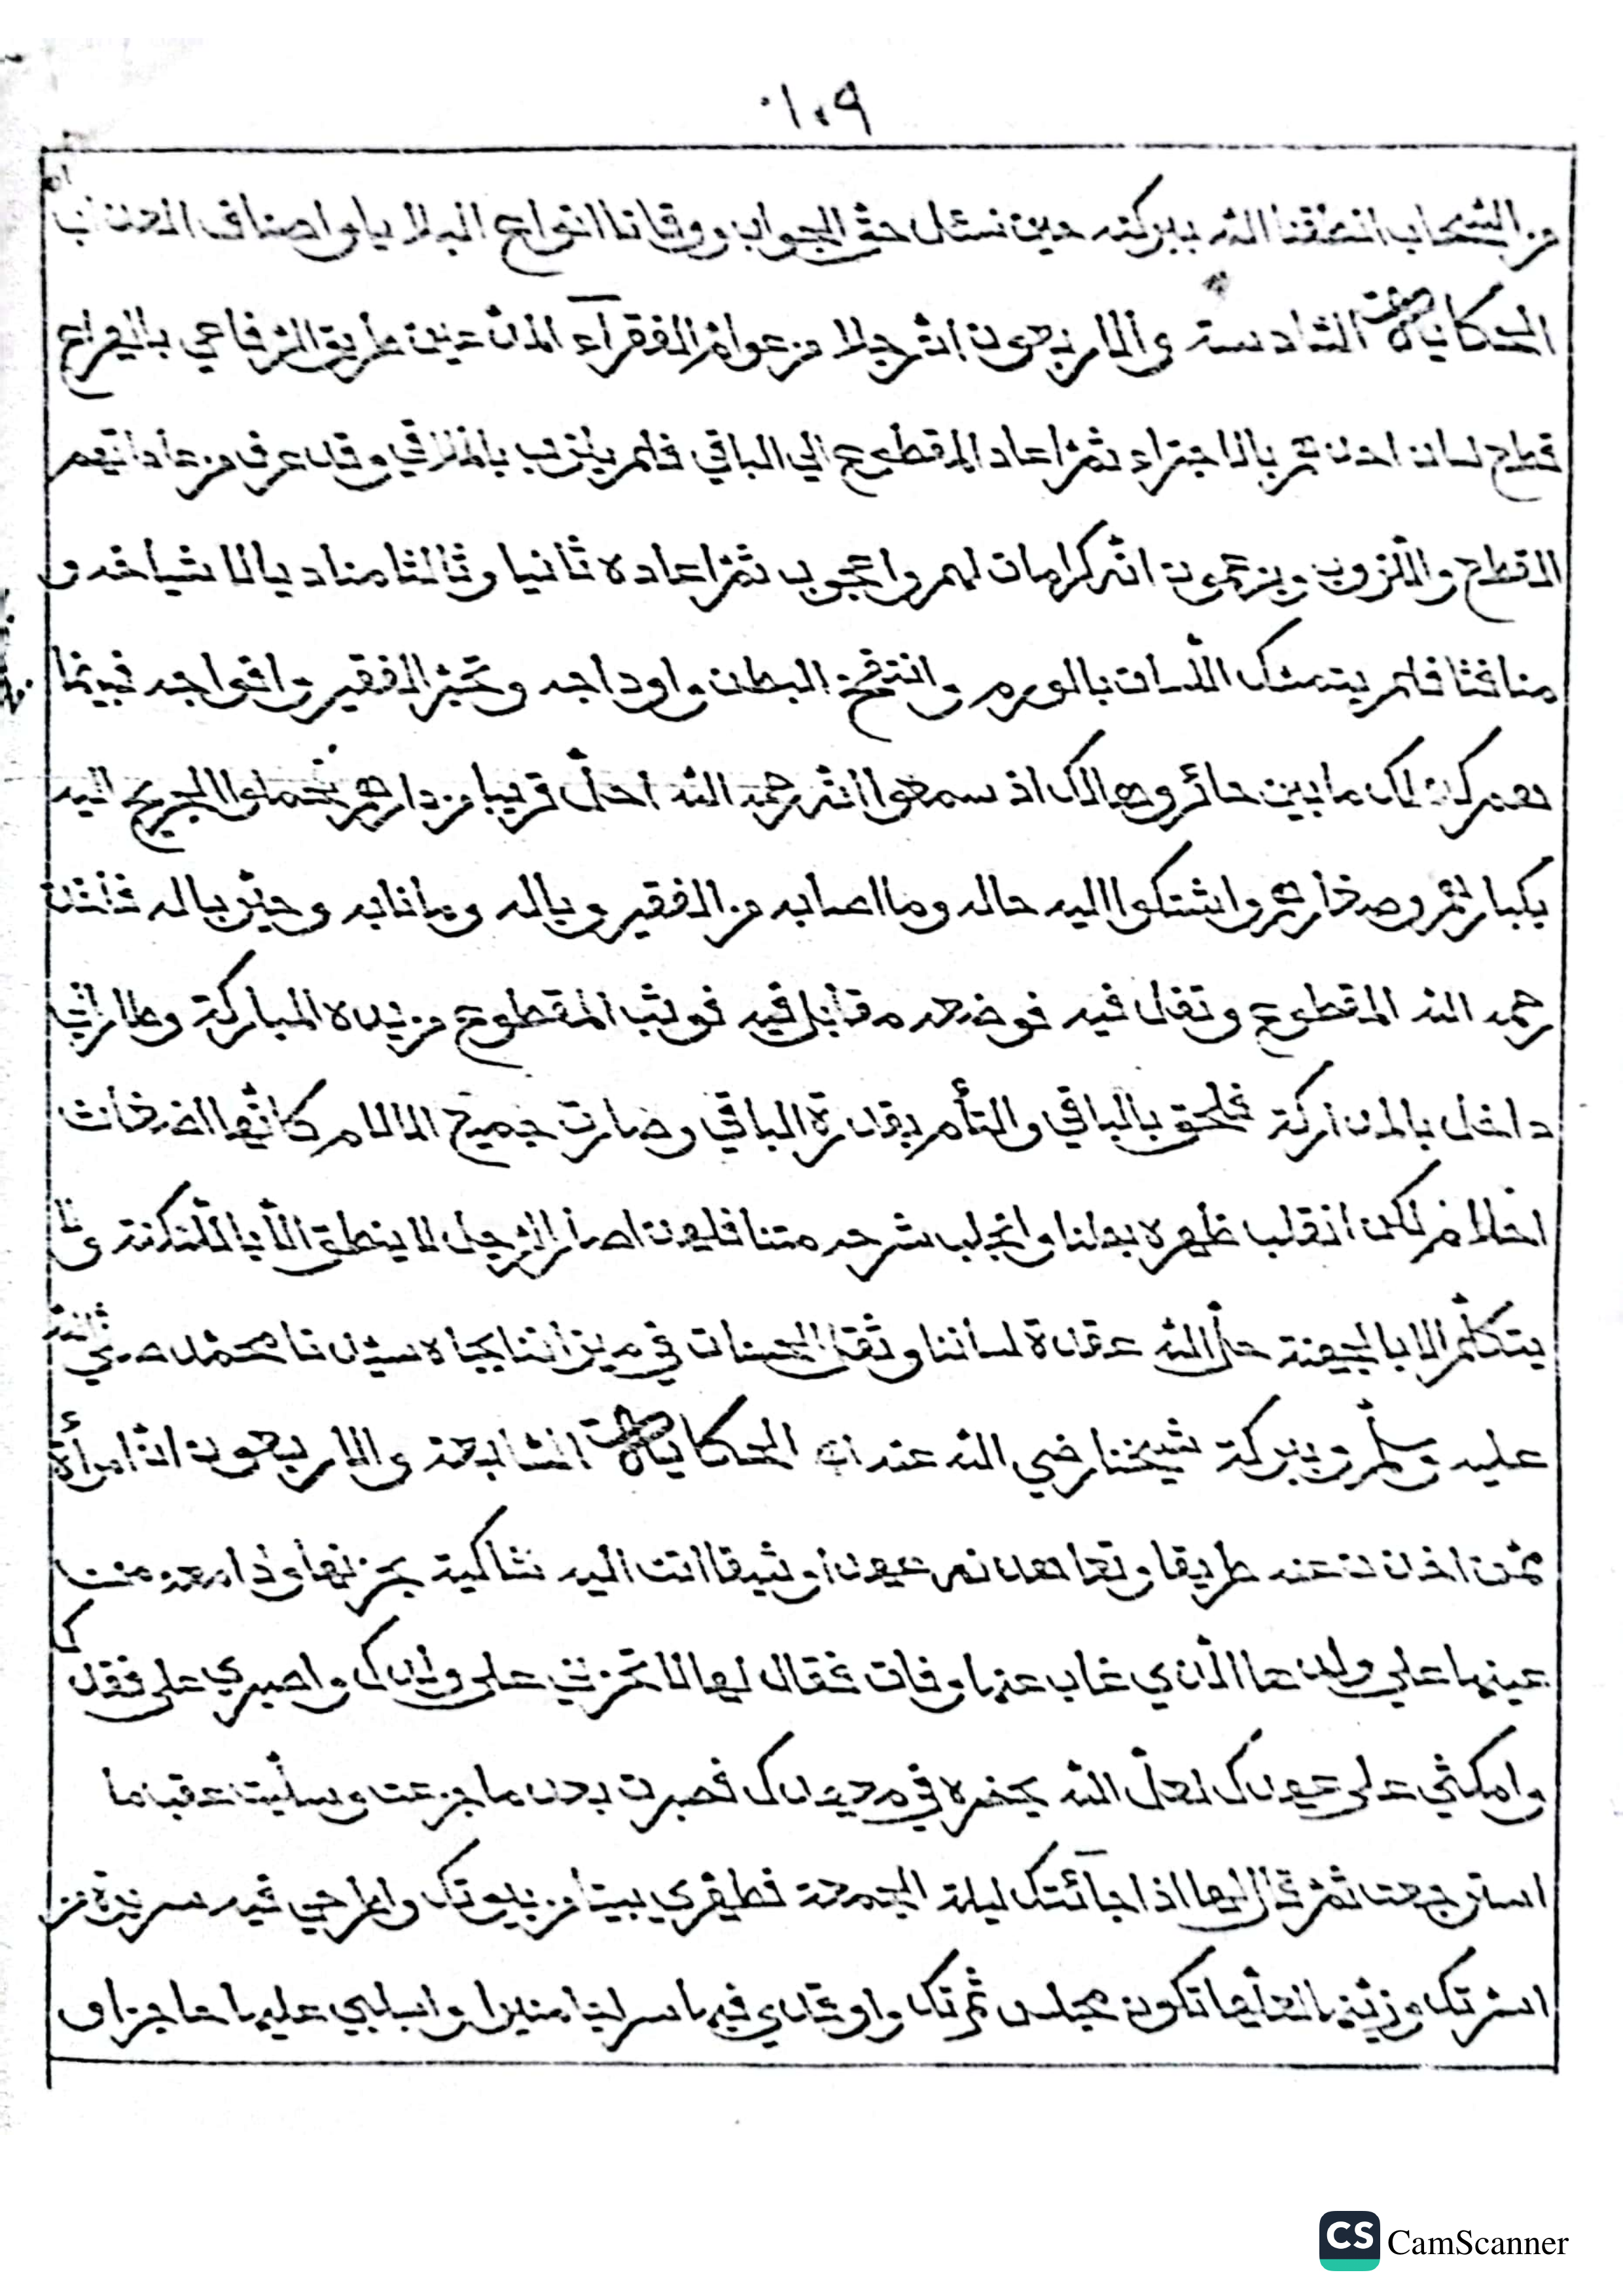 ١٠٩
من السحاب انطقنا الله ببركته حين نسئل حق الجواب ووقانا انواع البلايا واصناف العذاب
الحكاية السادسة والاربعون ان رجلا من عوام الفقراء المدعين طريق الرفاعي باليراع
قطع لسان احدهم بالاجتراء ثم اعاد المقطوع الي الباقي فلم يلزب بالملاقي وقد عرف من عاداتهم
القطع والالزوب ويزعمون انه كرامات لهم واعجوب ثم اعاده ثانيا وثالثا مناديا لاشياخه و
منافثا فلم يتمسك اللسان بالورم وانتفخ البطن واوداجه وتحير الفقير وافواجه فبينما
هم كذلك ما بين حائر وهالك اذ سمعوا انه رحمه الله احل قريبا من دارهم فحملوا الجريح اليه
بكبارهم وصغارهم واشتكوا اليه حاله وما اصابه من الفقير وباله وما نابه وحير باله فاخذ
رحمه الله المقطوع وتفل فيه فوضعه مقابل فيه فوثب المقطوع من يده المباركة وطار
داخل بالمداركة فلحق بالباقي والتأم بقدرة الباقي وصارت جميع الالام كانها اضغاث
احلام لكن انقلب ظهره بطنا وانجلب شرحه متنا فلهذا صار الرجل لا ينطق الا باللكنة
يتكلم الا بالجهنة حل الله عقدة لساننا وثقل الحسنات في ميزاننا بجاه سيدنا محمد صلي الله
عليه وسلم وببركة شيخنا رضي الله عنه الحكاية السابعة والاربعون ان امرأة
ممن اخذت عنه طريقا وتعاهدت عهدا وثيقا اتت اليه شاكية بحزنها دامعة
عينها علي ولدها الذي غاب عنها وفات فقال لها لا تحزني على ولدك واصبري على فقدك
وامكثي على عهدك لعل الله يحضره في معهدك فصبرت بعد ما جزعت وسليت عقب ما
استرجعت ثم قال لها اذا جائتك ليلة الجمعة فطهري بيتا من بيوتك واطرحي فيه سريرة من
اسرتك وزينها لعلها تكون مجلس ثمرتك واوقدي فيها سراجا منيرا واسبلي عليها حاجزا و
CS CamScanner